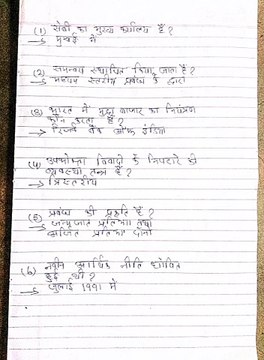 (1) सेबी का मुख्य कार्यालय है ?
→ मुंबई में
(2) समन्वय स्थापित किया जाता है ?
→ मध्यम स्तरीय प्रबंध के द्वारा
(3) भारत में मुद्रा बाजार का नियंत्रण
कौन करता है ?
→ रिजर्व बैंक ऑफ इंडिया
(4) उपभोक्ता विवादों के निपटारे की
व्यवस्था तन्त्र है ?
→ त्रिस्तरीय
(5) प्रबंध की प्रकृति है ?
→ जन्मजात प्रतिभा तथा
अर्जित प्रतिभा दोनों
(6) नवीन आर्थिक नीति घोषित
हुई थी ?
→ जुलाई 1991 में